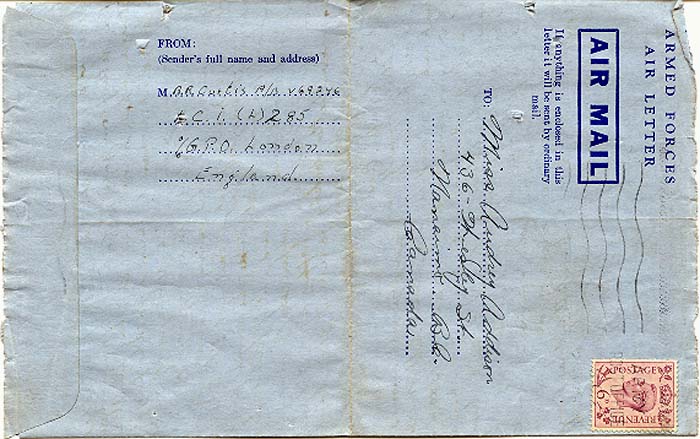 FROM:
(Sender's full name and address)
M. A.R. Curtis P/M V68246
L.C.I. (L) 285
℅ G.P.O. London
England
ARMED FORCES
AIR LETTER
AIR MAIL
If anything is enclosed in this
letter it will be sent by ordinary
mail.
TO:
Miss Audrey Addison
436 - Wesley St.
Nanaimo B.C.
Canada
POSTAGE
6D
REVENUE